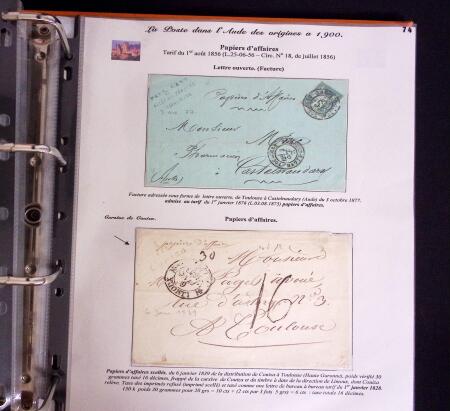 La Poste dans l'Aude des origines a 1,900.
74
Papiers d'affaires
Tarif du 1er août 1856 (L.25-06-56 – Circ. N° 18, de juillet 1856)
Lettre ouverte. (Facture)
Papiers d'Affaires
Monsieur
Castelnaudary
(Aude)
Facture adressée sous forme de lettre ouverte, de Toulouse à Castelnaudary (Aude) du 3 octobre 1877,
admise au tarif du 1er janvier 1874 (L.03.08.1875) papiers d'affaires.
Cursive de Couiza.
Papiers d'affaires.
papiers d'affaires
30
Monsieur
Pagès avoué
rue
n° 3
A Toulouse
Papiers d'affaires scellés, du 6 janvier 1839 de la distribution de Couiza à Toulouse (Haute Garonne), poids vérifié 30
grammes taxé 16 décimes, frappé de la cursive de Couiza et du timbre à date de la direction de Limoux, dont Couiza
relève. Taxe des imprimés refusé (imprimé scellé) et taxé comme une lettre de bureau à bureau tarif du 1er janvier 1828.
150 k poids 30 grammes
16 décimes.